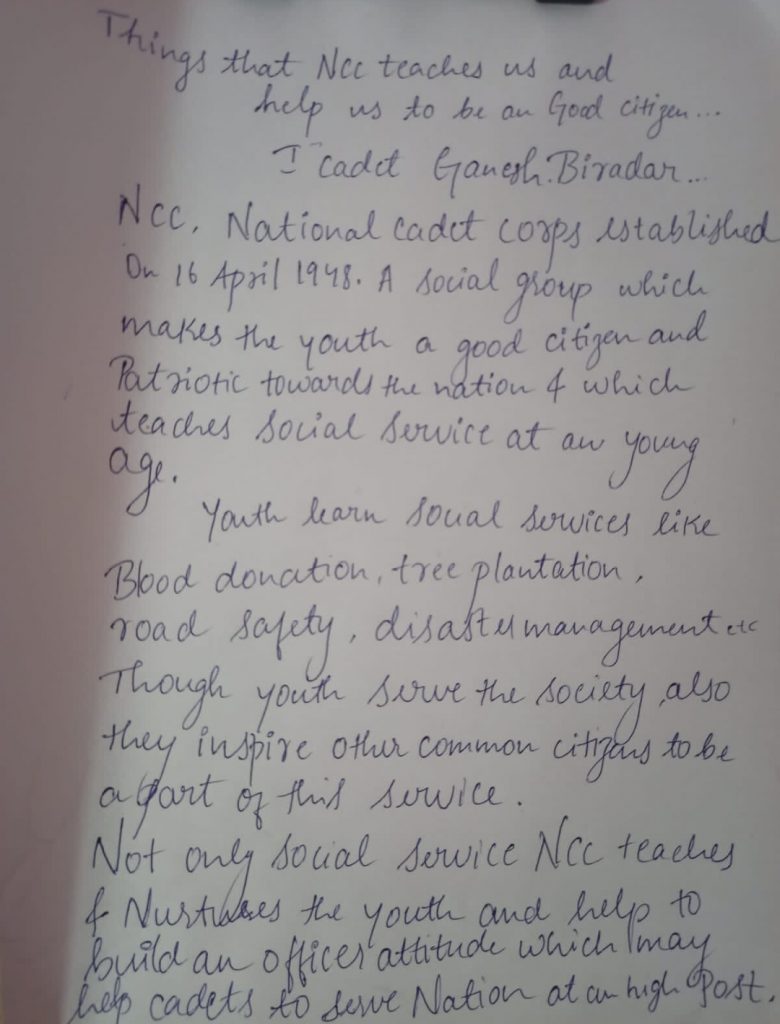 Things that Ncc teaches us and
help us to be an Good citizen...
I cadet Ganesh.Biradar...
Ncc. National cadet corps established
On 16 April 1948. A social group which
makes the youth a good citizen and
Patriotic towards the nation & which
teaches social service at an young
age.
Youth learn social services like
Blood donation, tree plantation,
road safety, disaster management etc
Though youth serve the society, also
they inspire other common citizens to be
a part of this service.
Not only social service Ncc teaches
& Nurtures the youth and help to
build an officer attitude which may
help cadets to serve Nation at an high Post.